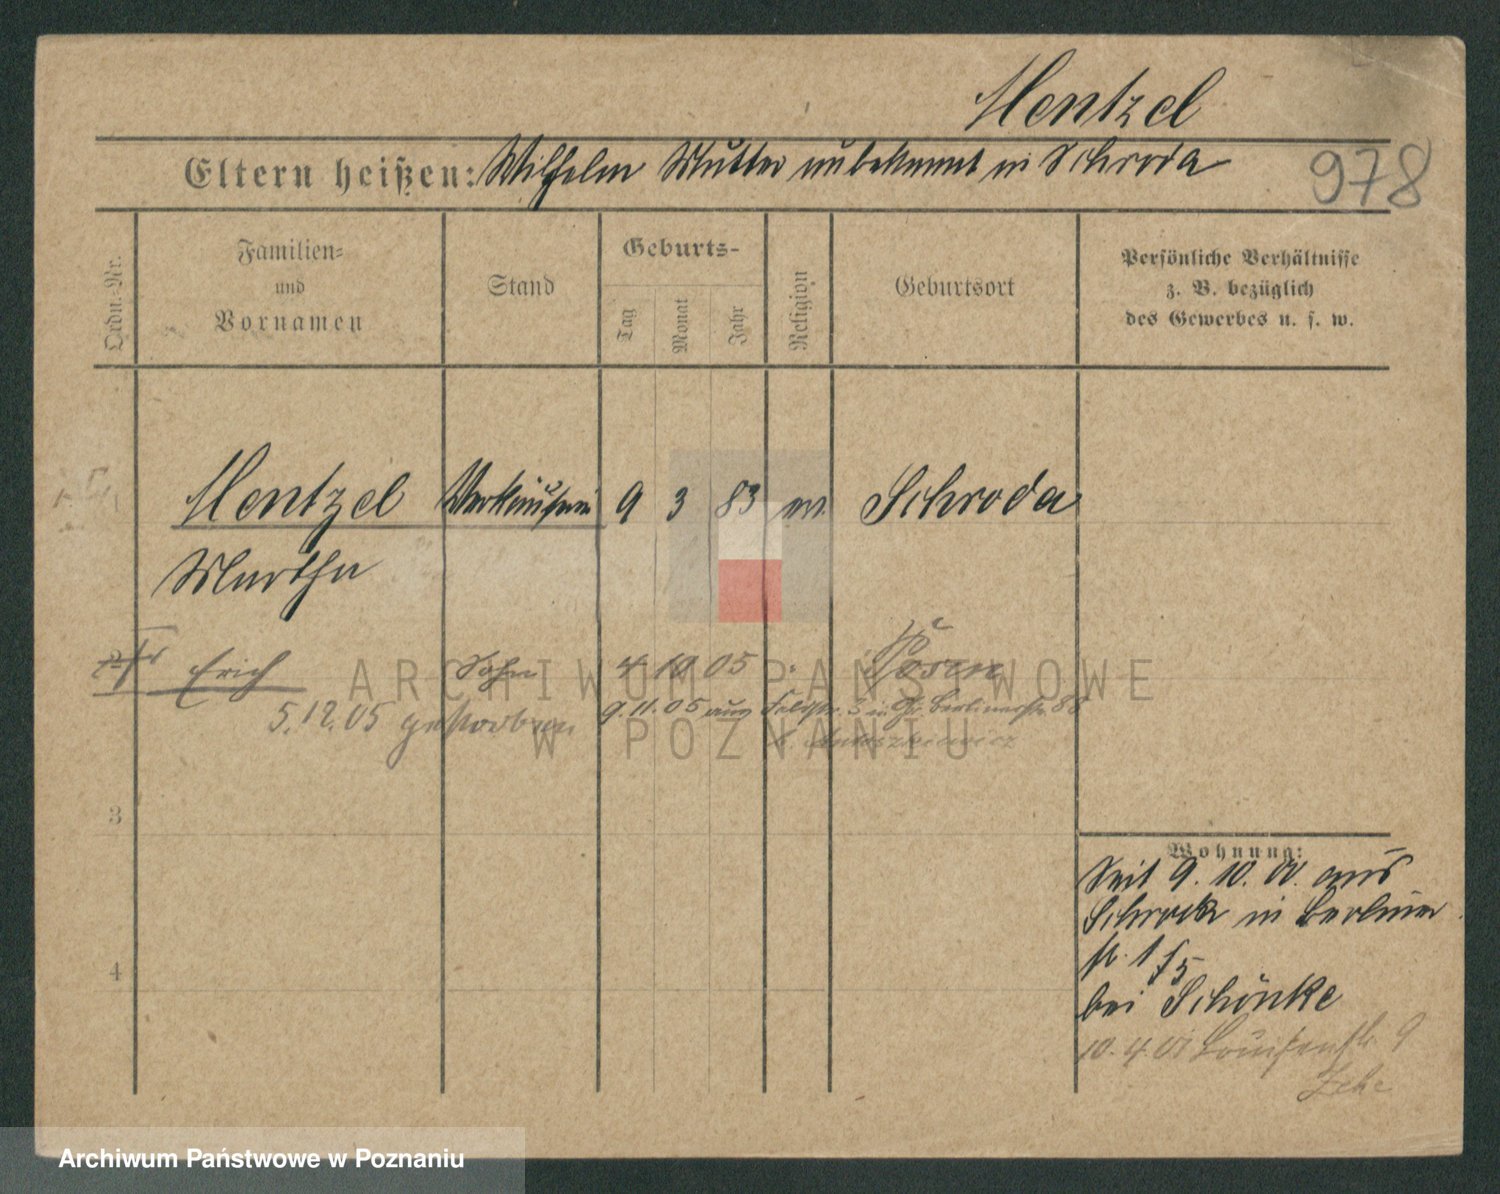 Hentzel
Eltern heißen: Wilhelm Mutter unbekannt in Schroda
978
Ordn.-Nr.
Familien-
und
Vornamen
Stand
Geburts-
Tag
Monat
Jahr
Religion
Geburtsort
Persönliche Verhältnisse
z. B. bezüglich
des Gewerbes u. s. w.
Hentzel Verkäuferin 9 3 83 ev. Schroda
Martha
Erich Sohn 4 10 05 Posen
5.12.05 gestorben
9.11.05 aus 3 in Gr. Berlinerstr. 88
ARCHIWUM PAŃSTWOWE
W POZNANIU
3
4
Wohnung:
Seit 9. 10. 00. aus
Schroda in Berliner
str. 1
bei Schönke
10.4.01 Louisenstr. 9
Archiwum Państwowe w Poznaniu